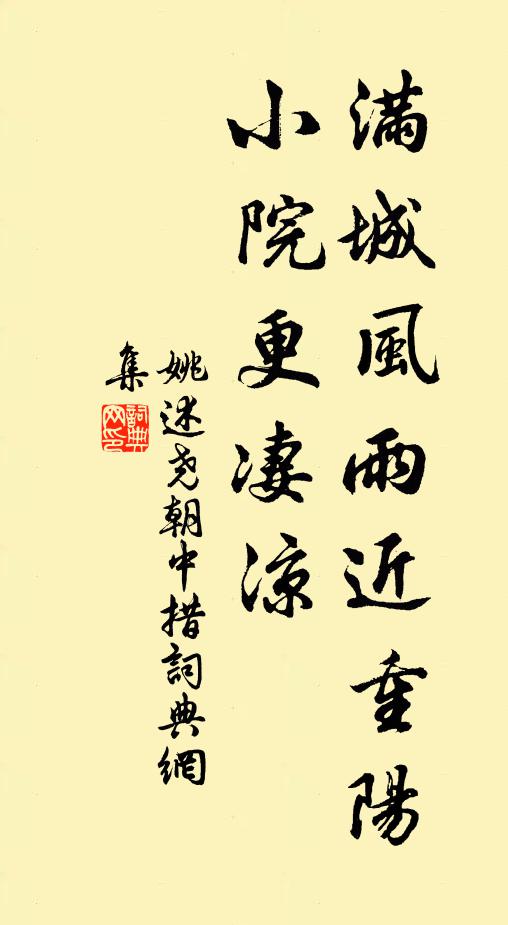 滿城風雨近重陽
小院更凄涼
姚述堯朝中措詞典網
集
詞典
网印